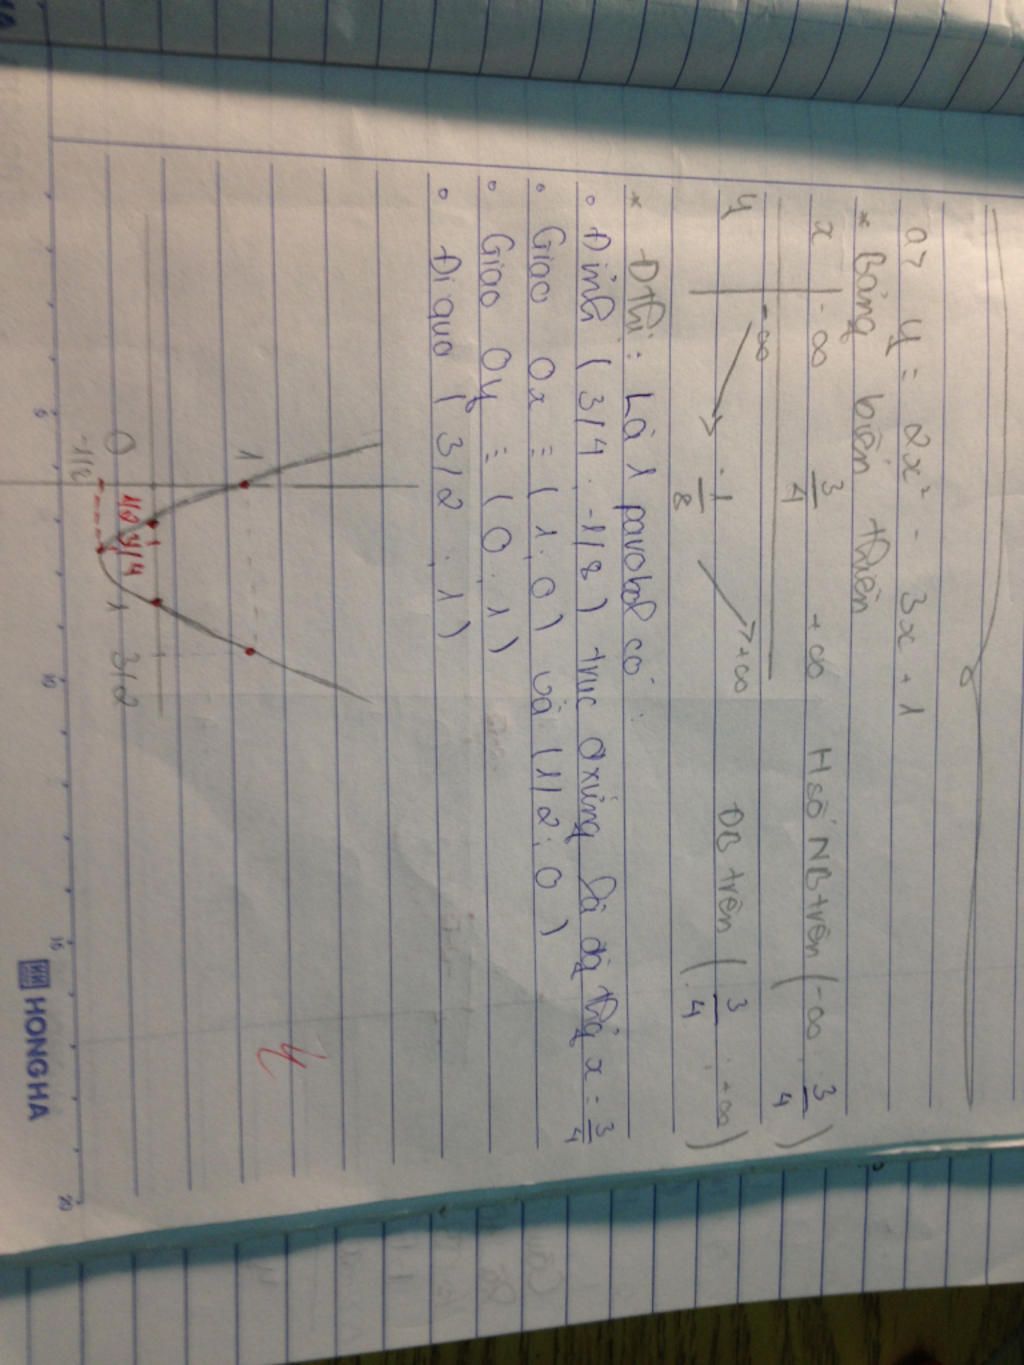 a> y = 2x² - 3x + 1
* Bảng biến thiên
x -∞ 3/4 +∞ H số NB trên (-∞; 3/4)
y -∞ -1/8 +∞ ĐB trên (3/4; +∞)
* Đthị: Là 1 parabol có:
∘ Đỉnh (3/4; -1/8) trục đxứng là đg thg x = 3/4
∘ Giao Ox ≡ (1; 0) và (1/2; 0)
∘ Giao Oy ≡ (0; 1)
∘ Đi qua (3/2; 1)
1
0 1/2 3/4 1 3/2
-1/8
y
5 10 15 20
HH HONG HA